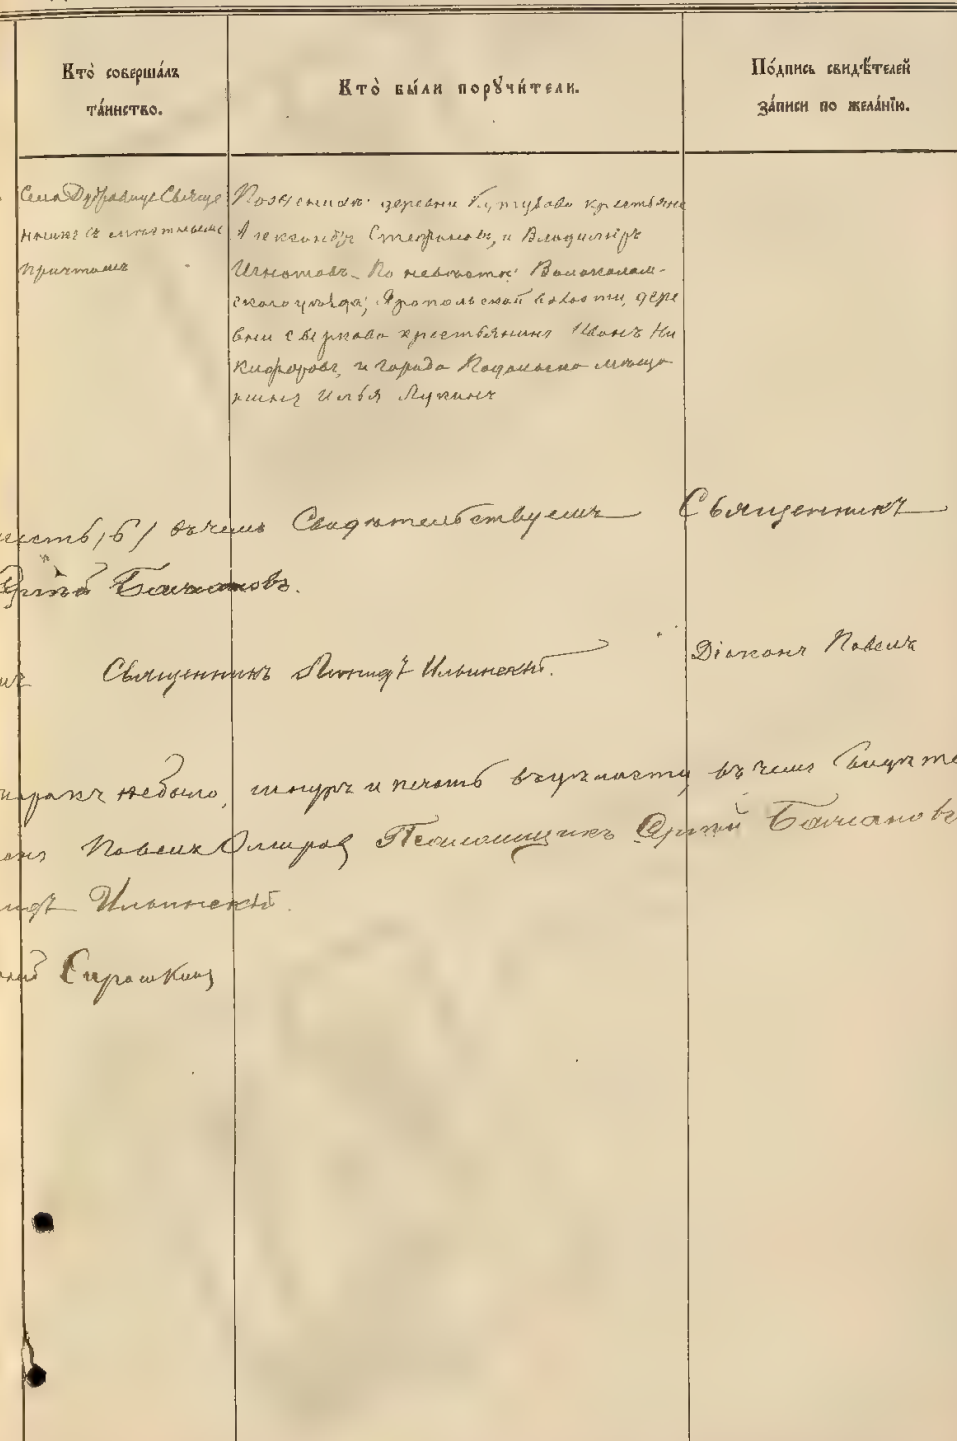 Кто̀ соверша́лъ
та́инство.
Кто̀ бы́ли порꙋчи́тели.
По́дпись свидѣ́телей
за́писи по жела́нїю.
Села Дубравицъ Священ
никъ съ мѣстнымъ
причтомъ
По женихѣ: деревни Кутузова крестьяне
Александръ Стефановъ, и Владимiръ
Игнатовъ. По невѣстѣ: Волоколам-
скаго уѣзда, Яропольской волости, дере
вни Сверкова крестьянинъ Иванъ Ни
кифоровъ, и города Подольска мѣща
нинъ Илья Лукинъ
шесть /6/ въ чемъ Свидѣтельствуемъ Священникъ
Сергѣй
Священникъ Леонидъ Ильинскiй. Дiаконъ Павелъ
помарокъ небыло, шнуръ и печать въ цѣлости, въ чемъ Свидѣте
Павелъ Псаломщикъ Сергѣй
Ильинскiй.